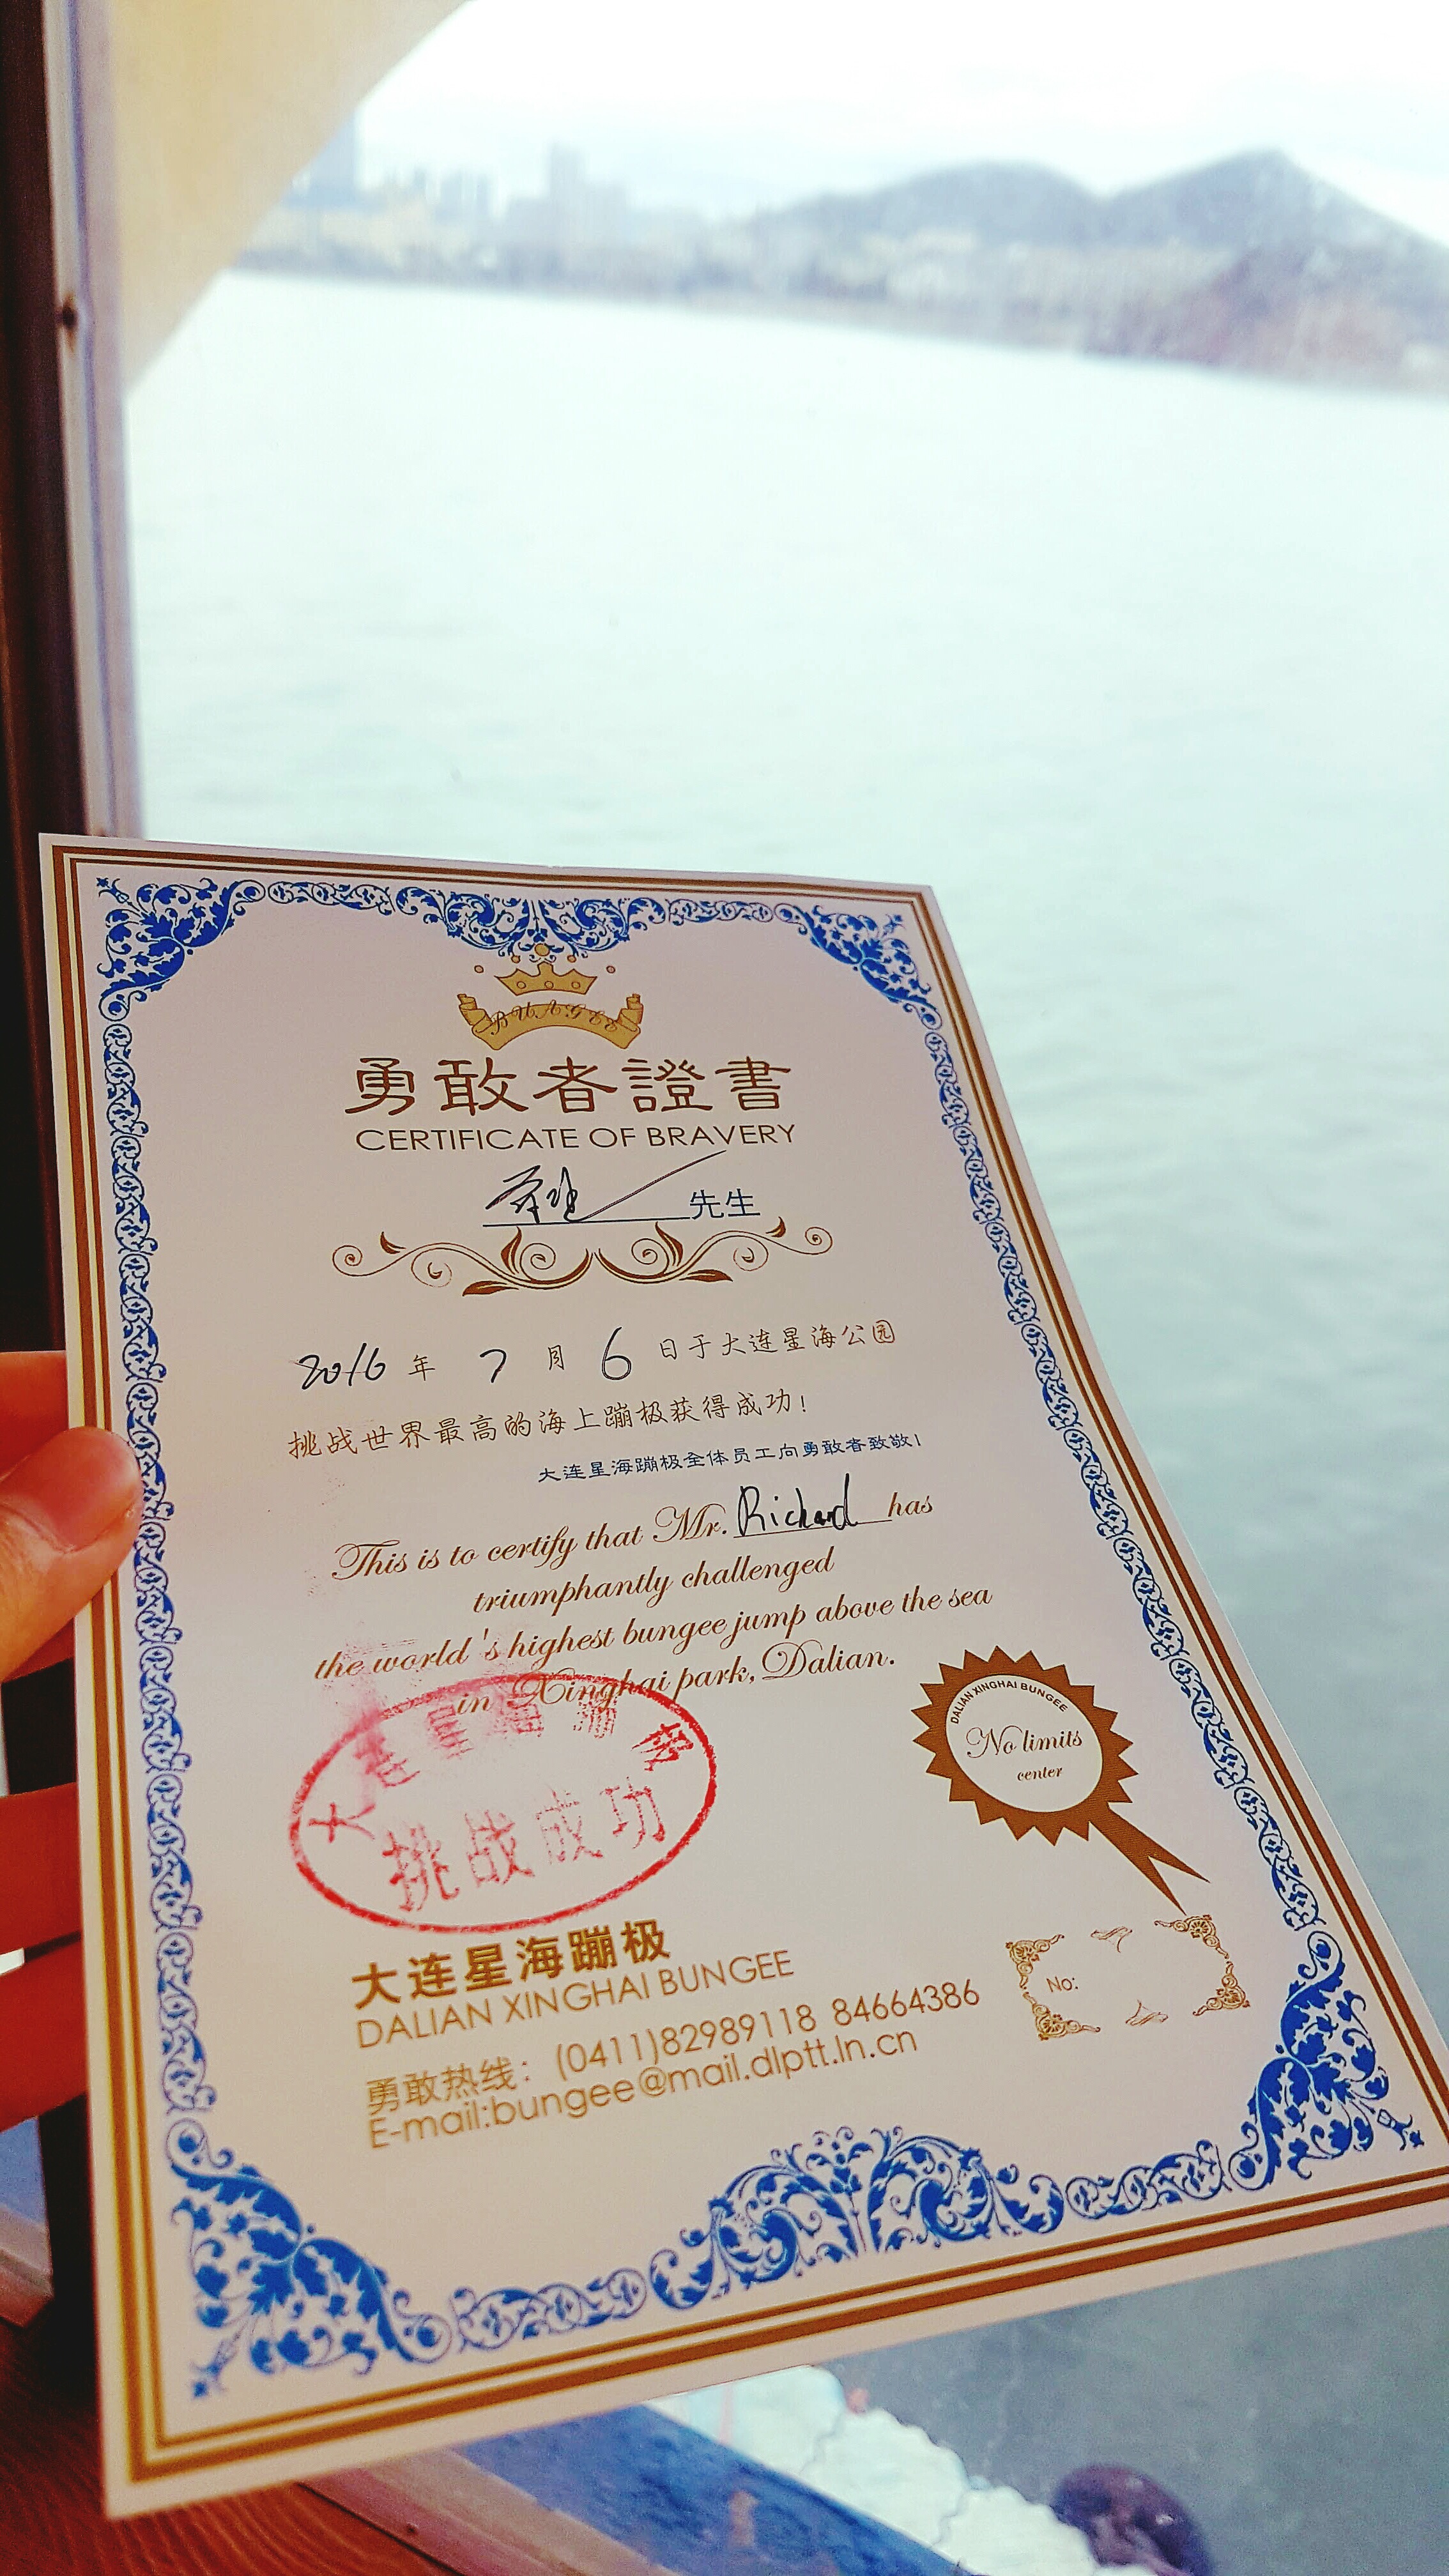 BUAGEE
勇敢者證書
CERTIFICATE OF BRAVERY
先生
2016 年 7 月 6 日于大连星海公园
挑战世界最高的海上蹦极获得成功!
大连星海蹦极全体员工向勇敢者致敬!
This is to certify that Mr. Richard has
triumphantly challenged
the world 's highest bungee jump above the sea
in Xinghai park, Dalian.
DALIAN XINGHAI BUNGEE
No limits
center
大连星海蹦极
挑战成功
大连星海蹦极
DALIAN XINGHAI BUNGEE
No:
勇敢热线: (0411)82989118 84664386
E-mail:bungee@mail.dlptt.ln.cn